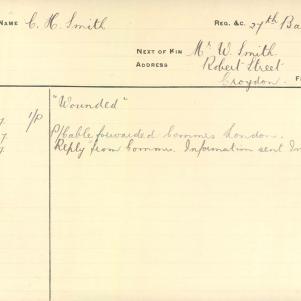 NAME C. H. Smith REG. &C. 27th Ba
NEXT OF KIN Mr W. Smith
ADDRESS Robert Street
Croydon. F
"Wounded"
7. 1/P
7 P/Cable forwarded Commes London.
7. Reply from Commes. Information sent In